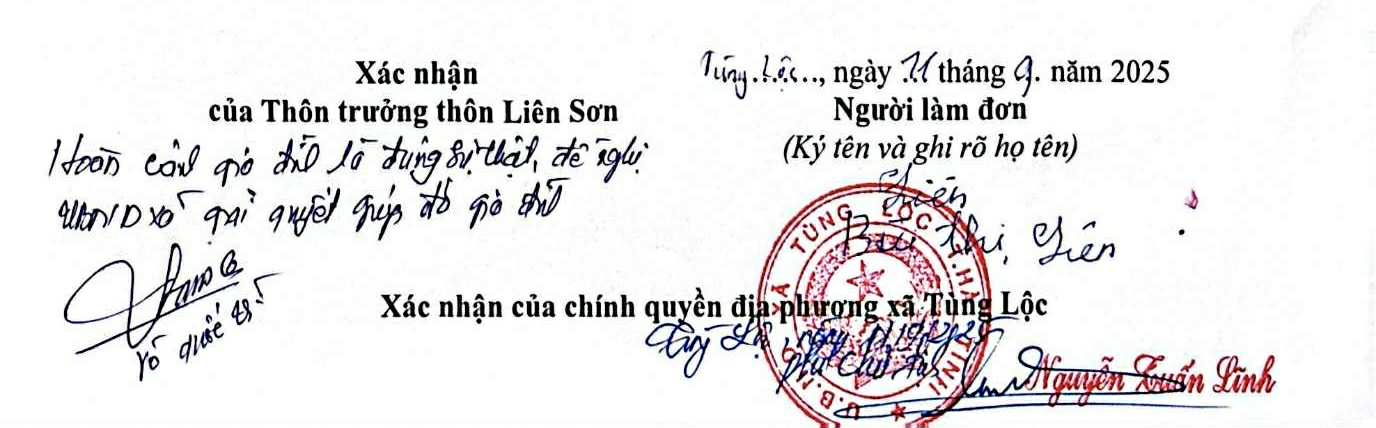 Xác nhận
của Thôn trưởng thôn Liên Sơn
Hoàn cảnh gia đình là đúng sự thật, đề nghị
UBND xã giải quyết giúp đỡ gia đình
Võ Quốc
Tùng Lộc..., ngày 11 tháng 9. năm 2025
Người làm đơn
(Ký tên và ghi rõ họ tên)
Liên
Bùi Thị Liên
Xác nhận của chính quyền địa phương xã Tùng Lộc
Tùng Lộc, ngày
Phó Chủ tịch
U.B.N.D XÃ TÙNG LỘC T.HÀ TĨNH
Nguyễn Tuấn Lĩnh